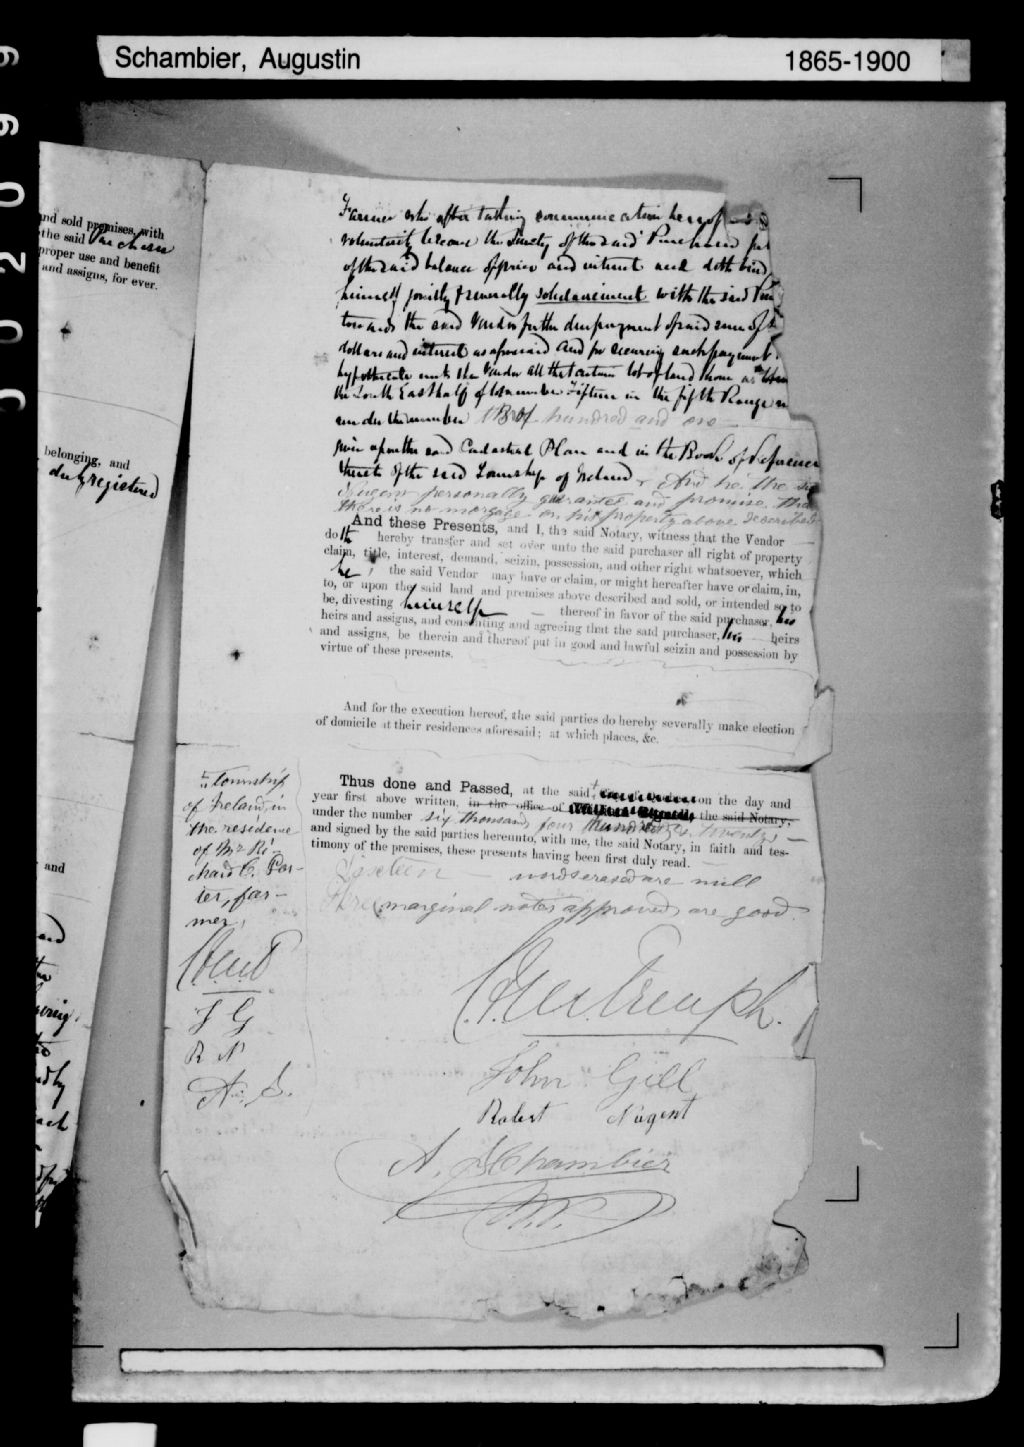 Schambier, Augustin
1865-1900
and sold premises, with
the said Purchaser
proper use and benefit
and assigns, for ever.
belonging, and
duly registered
and
Farmer who after taking communication hereof
voluntarily became the Surety of the said Purchaser
of the said balance of price and interest and doth bind
himself jointly & severally solidairement with the said
towards the said Vendor for the due payment of said sum of
dollars and interest as aforesaid and for securing such payment
hypothecate unto the Vendor all that certain lot of land known as
the South East half of lot number Fifteen in the fifth Range
under the number hundred and one
upon the said Cadastral Plan and in the Book of Reference
thereto of the said Township of Ireland And he the
personally guaranteed and promise that
there is no morgage on his property above described
And these Presents, and I, the said Notary, witness that the Vendor
doth hereby transfer and set over unto the said purchaser all right of property
claim, title, interest, demand, seizin, possession, and other right whatsoever, which
he, the said Vendor may have or claim, or might hereafter have or claim, in,
to, or upon the said land and premises above described and sold, or intended so to
be, divesting himself thereof in favor of the said purchaser, his
heirs and assigns, and consenting and agreeing that the said purchaser, his heirs
and assigns, be therein and thereof put in good and lawful seizin and possession by
virtue of these presents.
And for the execution hereof, the said parties do hereby severally make election
of domicile at their residences aforesaid; at which places, &c.
Thus done and Passed, at the said on the day and
year first above written, in the office of the said Notary,
under the number six thousand four hundred twenty
and signed by the said parties hereunto, with me, the said Notary, in faith and tes-
timony of the premises, these presents having been first duly read.
Sixteen words erased are null
Three marginal notes approved are good.
township
of Ireland, in
the residence
of Mr Ri-
chard C. Por-
ter, far-
mer,
J G
R N
A. S.
John Gill
Robert Nugent
A. Schambier
N.P.